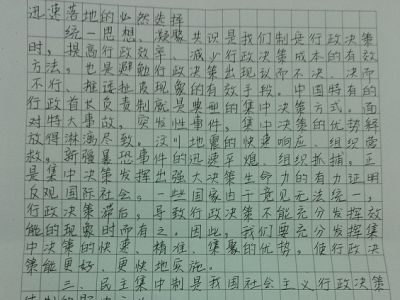 迅速落地的必然选择
统一思想、凝聚共识是我们制定行政决策
时,提高行政效率、减少行政决策成本的有效
方法,也是避免行政决策出现议而不决、决而
不行、推诿扯皮现象的有效手段。中国特有的
行政首长负责制就是典型的集中决策方式。面
对特大事故,突发性事件,集中决策的优势解
放得淋漓尽致。汶川地震的快速响应、组织营
救。新疆暴恐事件的迅速平熄、组织抓捕,正
是集中决策发挥出强大决策生命力的有力证明
反观国际社会。一些国家由于意见无法统一,
行政决策滞后,导致行政决策不能充分发挥效
能的现象时而有之。因此,我们要充分发挥集
中决策的快速、精准、集聚的优势,使行政决
策能更好、更快地实施。
三、民主集中制是我国社会主义行政决策